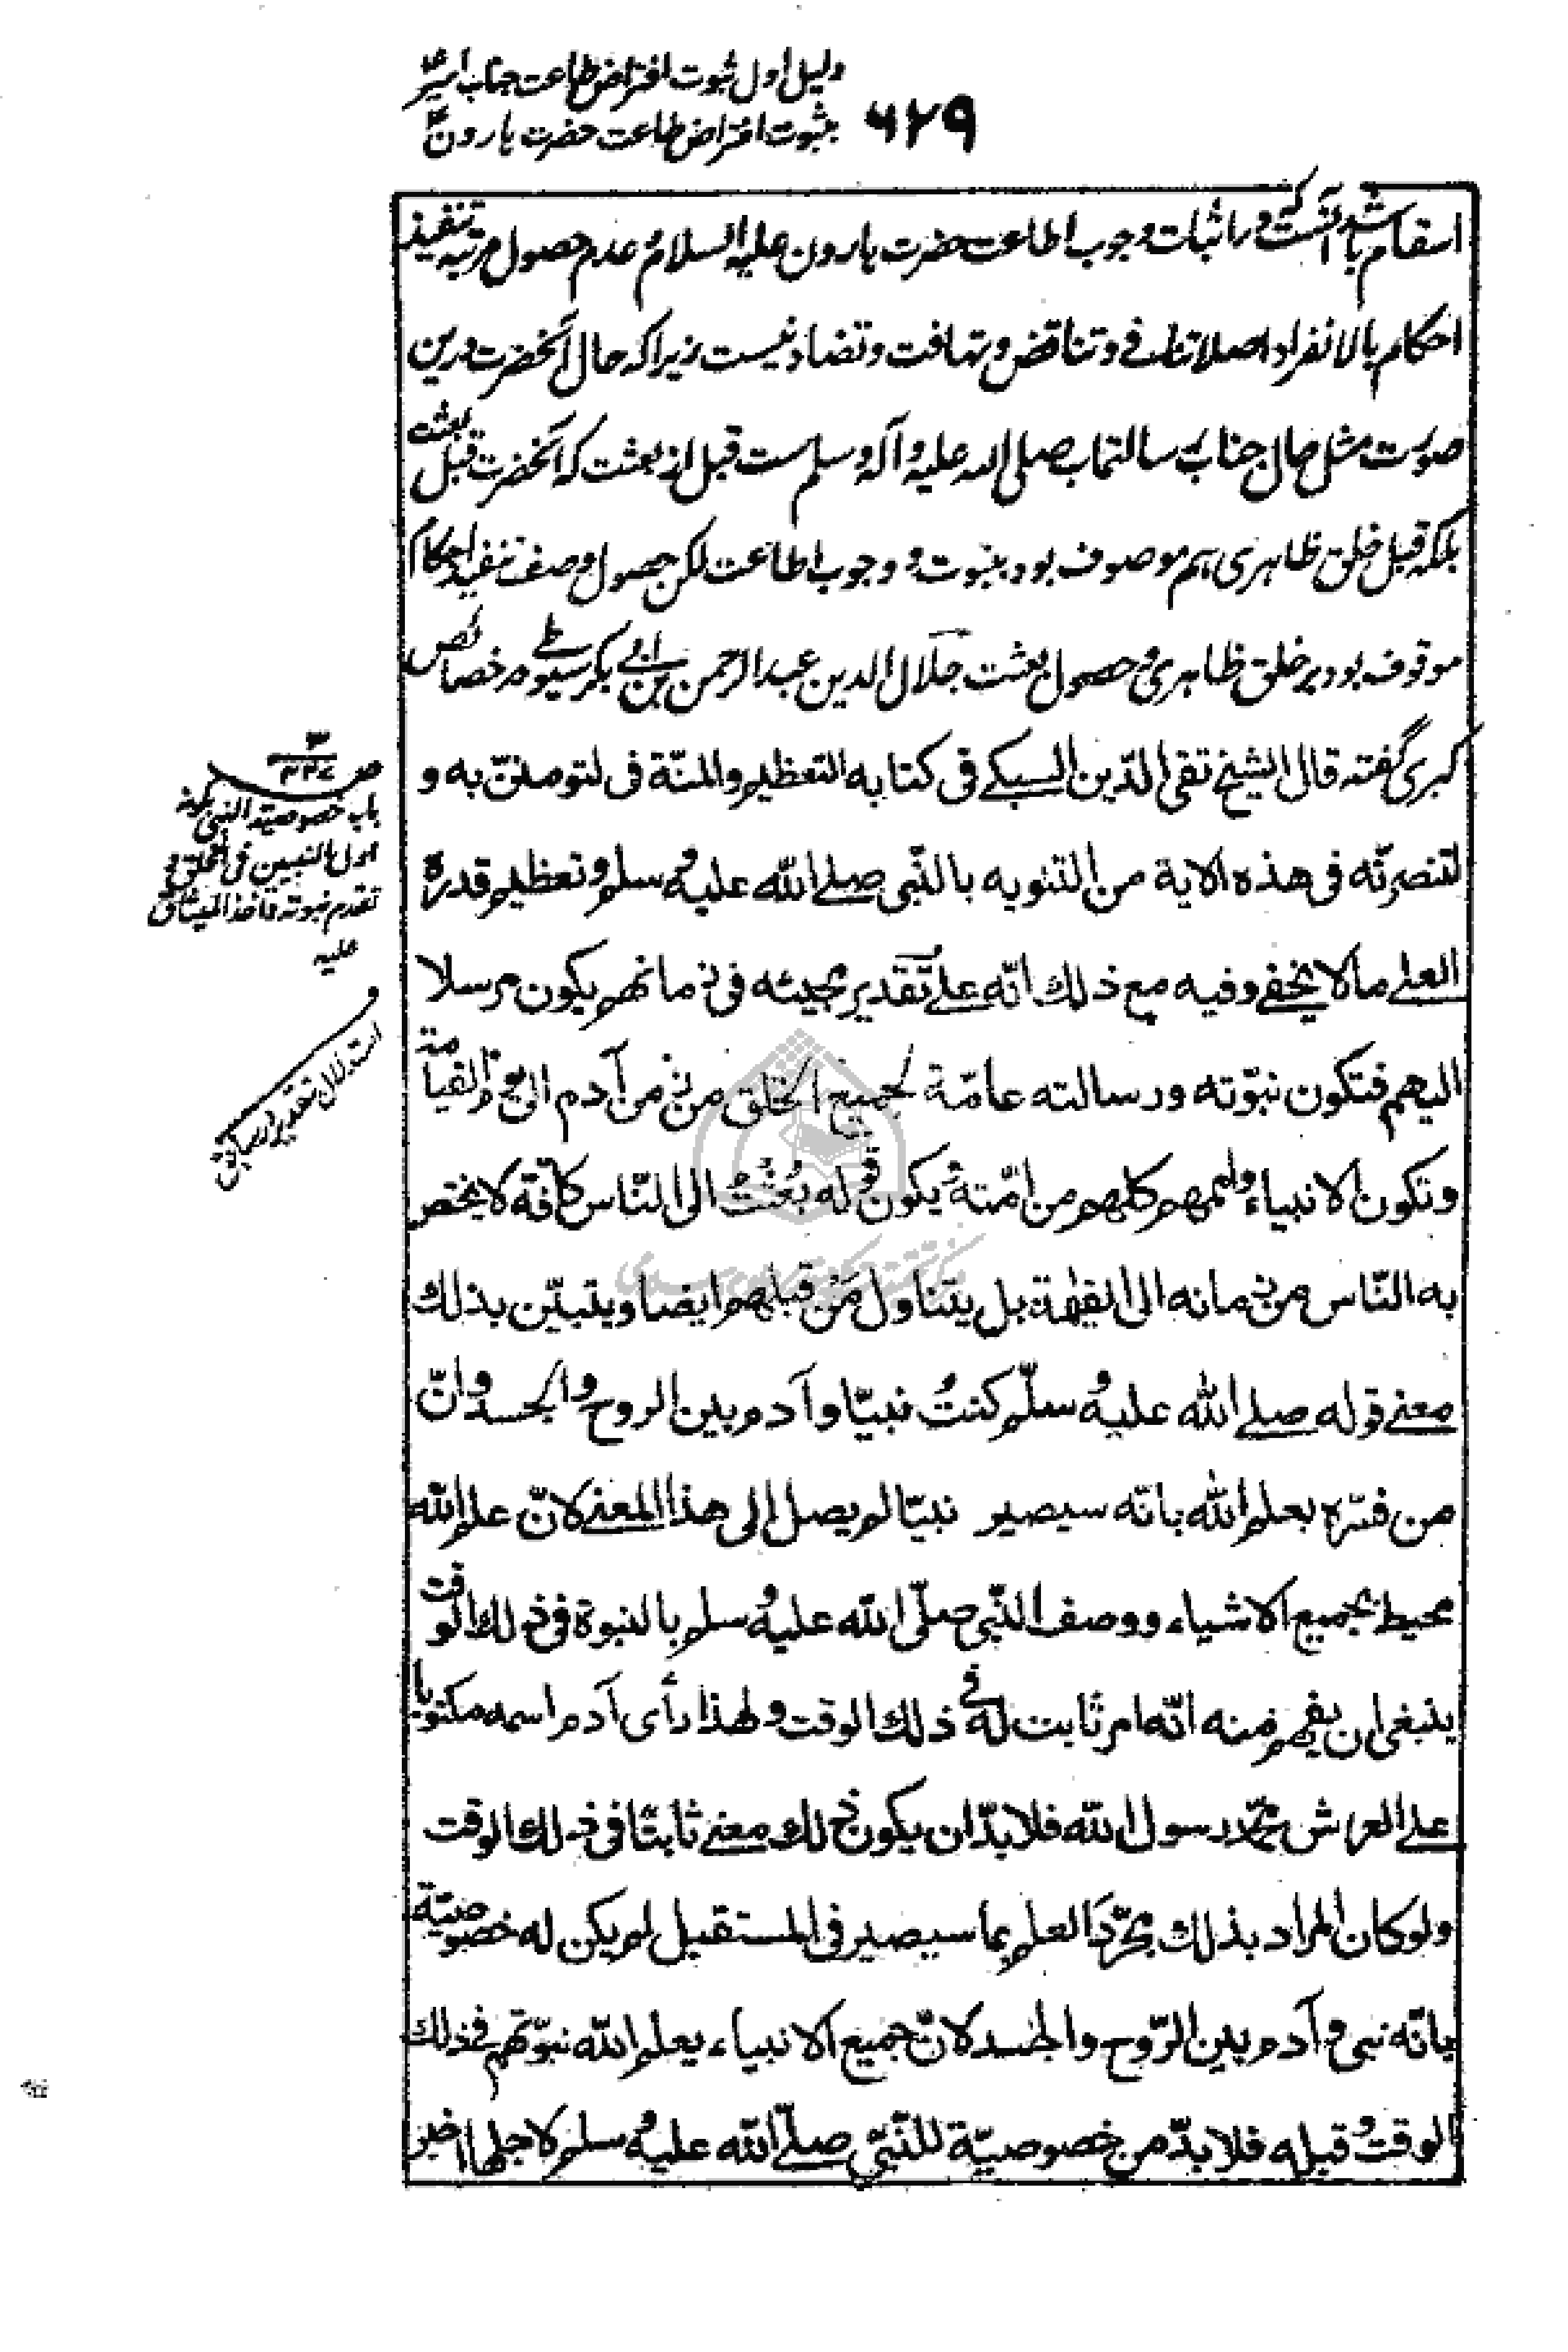 دلیل اول ثبوت افتراض طاعت جناب امیرؑ
بثبوت افتراض طاعت حضرت هارونؑ
۶۲۹
اسقام باشد آنست که در اثبات وجوب اطاعت حضرت هارون علیه السلام و عدم حصول مرتبه تنفیذ
احکام بالانفراد اصلا تنافی و تناقض و تهافت و تضاد نیست زیرا که حال آنحضرت درین
صورت مثل حال جناب رسالتمآب صلی الله علیه و آله و سلم ست قبل از بعثت که آنحضرت قبل بعثت
بلکه قبل خلق ظاهری هم موصوف بود بنبوت و وجوب اطاعت لکن حصول وصف تنفیذ احکام
موقوف بود بر خلق ظاهری و حصول بعثت جلال الدین عبد الرحمن بن ابی بکر سیوطی در خصائص
کبری گفته قال الشیخ تقی الدّین السبکے فی کتابه التعظیم والمنّة فی لتومننّ به و
لتنصرنّه فی هذه الایة من التنویه بالنّبی صلے الله علیه و سلم و تعظیم قدره
العلے ما لا یخفے وفیه مع ذلك انّه علے تقدیر مجیئه فی زمانهم یکون مرسلا
الیهم فتکون نبوّته ورسالته عامّة لجمیع الخلق من زمن آدم الی یوم القیامة
وتکون الانبیاء و اممهم کلهم من امّته و یکون قوله بُعثتُ الی النّاس کافّة لا یختص
به النّاس من زمانه الی القیٰمة بل یتناول مَن قبلهم ایضا و یتبیّن بذلك
معنے قوله صلے الله علیه و سلّم کنتُ نبیّا و آدم بین الروح و الجسد و انّ
من فسّره بعلم الله بانّه سیصیر نبیّا لم یصل إلی هذا المعنے لانّ علم الله
محیط بجمیع الاشیاء و وصف النّبی صلّی الله علیه و سلم بالنبوة فی ذلك الوقت
ینبغی ان یفهم منه انّه امر ثابت له فی ذلك الوقت و لهذا رأی آدم اسمه مکتوبا
علے العرش محمّد رسول الله فلا بدّ ان یکون ذلك معنے ثابتًا فی ذلك الوقت
ولو کان المراد بذلك مجرّد العلم بما سیصیر فی المستقبل لم یکن له خصوصیّة
بانّه نبی و آدم بین الرّوح والجسد لانّ جمیع الانبیاء یعلم الله نبوّتهم فی ذلك
الوقت و قبله فلا بدّ من خصوصیّة للنّبیّ صلّے الله علیه و سلم لاجلها اخبر
باب خصوصیة النبی بکونه
اول النبیین فی الخلق و
تقدم نبوته واخذ المیثاق
علیه